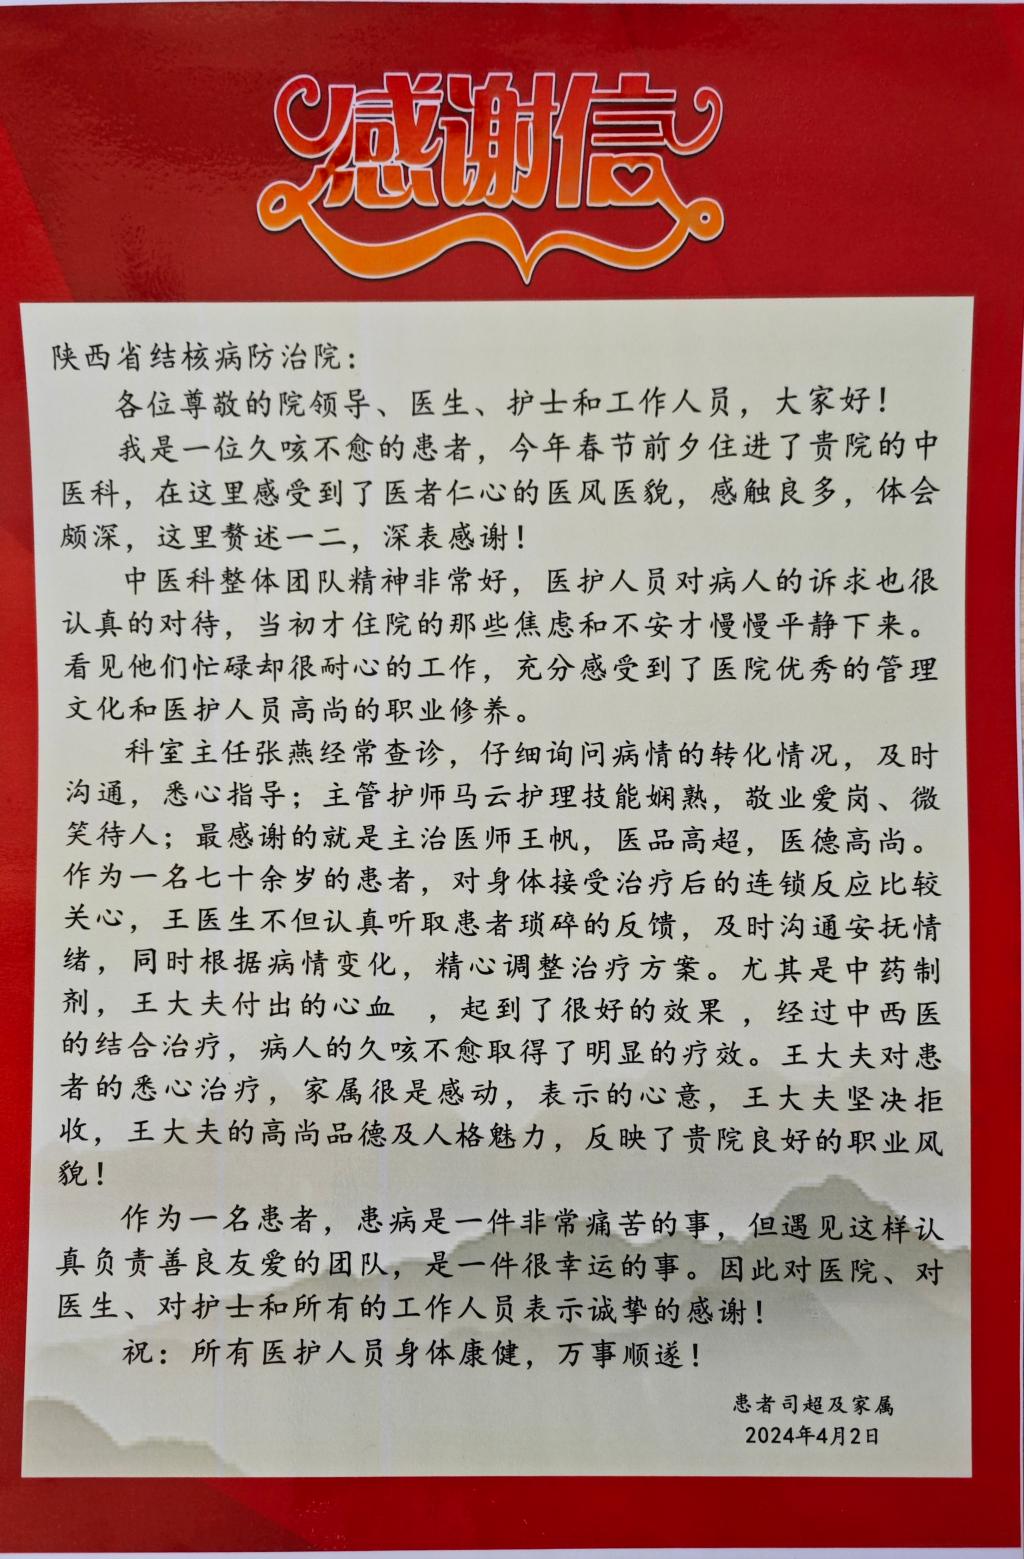 感谢信
陕西省结核病防治院：
各位尊敬的院领导、医生、护士和工作人员，大家好！
我是一位久咳不愈的患者，今年春节前夕住进了贵院的中
医科，在这里感受到了医者仁心的医风医貌，感触良多，体会
颇深，这里赘述一二，深表感谢！
中医科整体团队精神非常好，医护人员对病人的诉求也很
认真的对待，当初才住院的那些焦虑和不安才慢慢平静下来。
看见他们忙碌却很耐心的工作，充分感受到了医院优秀的管理
文化和医护人员高尚的职业修养。
科室主任张燕经常查诊，仔细询问病情的转化情况，及时
沟通，悉心指导；主管护师马云护理技能娴熟，敬业爱岗、微
笑待人；最感谢的就是主治医师王帆，医品高超，医德高尚。
作为一名七十余岁的患者，对身体接受治疗后的连锁反应比较
关心，王医生不但认真听取患者琐碎的反馈，及时沟通安抚情
绪，同时根据病情变化，精心调整治疗方案。尤其是中药制
剂，王大夫付出的心血 ，起到了很好的效果，经过中西医
的结合治疗，病人的久咳不愈取得了明显的疗效。王大夫对患
者的悉心治疗，家属很是感动，表示的心意，王大夫坚决拒
收，王大夫的高尚品德及人格魅力，反映了贵院良好的职业风
貌！
作为一名患者，患病是一件非常痛苦的事，但遇见这样认
真负责善良友爱的团队，是一件很幸运的事。因此对医院、对
医生、对护士和所有的工作人员表示诚挚的感谢！
祝：所有医护人员身体康健，万事顺遂！
患者司超及家属
2024年4月2日